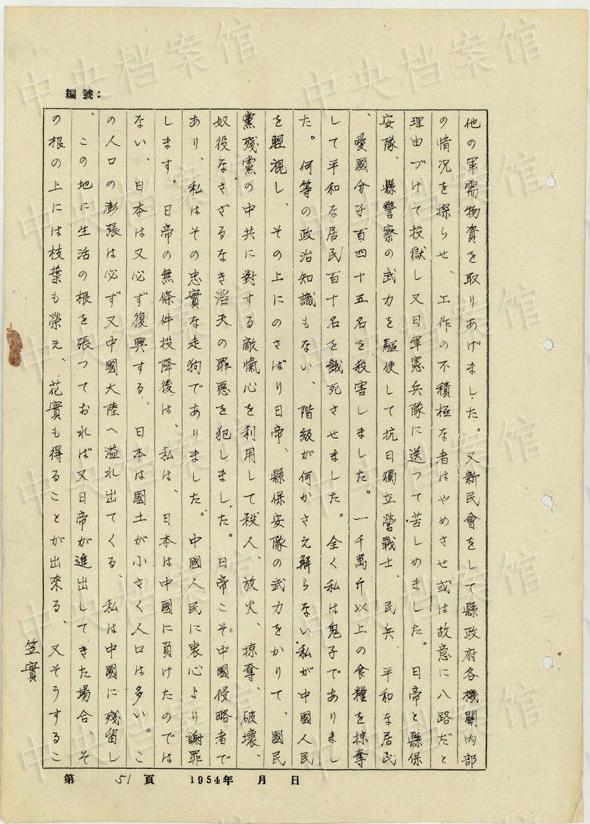 編號：
他の軍需物資を取りあげました。又新民會をして縣政府各機關内部
の情況を探らせ、工作の不積極な者はやめさせ或は故意に八路だと
理由づけて投獄し又日軍憲兵隊に送つて苦しめました。日帝と縣保
安隊、縣警察の武力を駆使して抗日獨立營戰士、民兵、平和な居民
、愛國分子百四十五名を殺害しました。一千萬斤以上の食糧を掠奪
して平和な居民百十名を餓死させました。全く私は鬼子でありまし
た。何等の政治知識もない、階級が何かさえ解らない私が中國人民
を輕視し、その上にのさばり日帝、縣保安隊の武力をかりて、國民
黨殘黨の中共に對する敵愾心を利用して殺人、放火、掠奪、破壞、
奴役なさざるなき滔天の罪惡を犯しました。日帝こそ中國侵略者で
あり、私はその忠實な走狗でありました。中國人民に衷心より謝罪
します。日帝の無條件投降後は、私は、日本は中國に負けたのでは
ない、日本は又必ず復興する、日本は國土が小さく人口は多い。こ
の人口の膨張は必ず又中國大陸へ溢れ出てくる、私は中國に殘留し
、この地に生活の根を張つておれば又日帝が進出してきた場合、そ
の根の上には枝葉も榮え、花實も得ることが出來る、又そうするこ
笠實
第 51 頁 1954年 月 日
中央档案馆